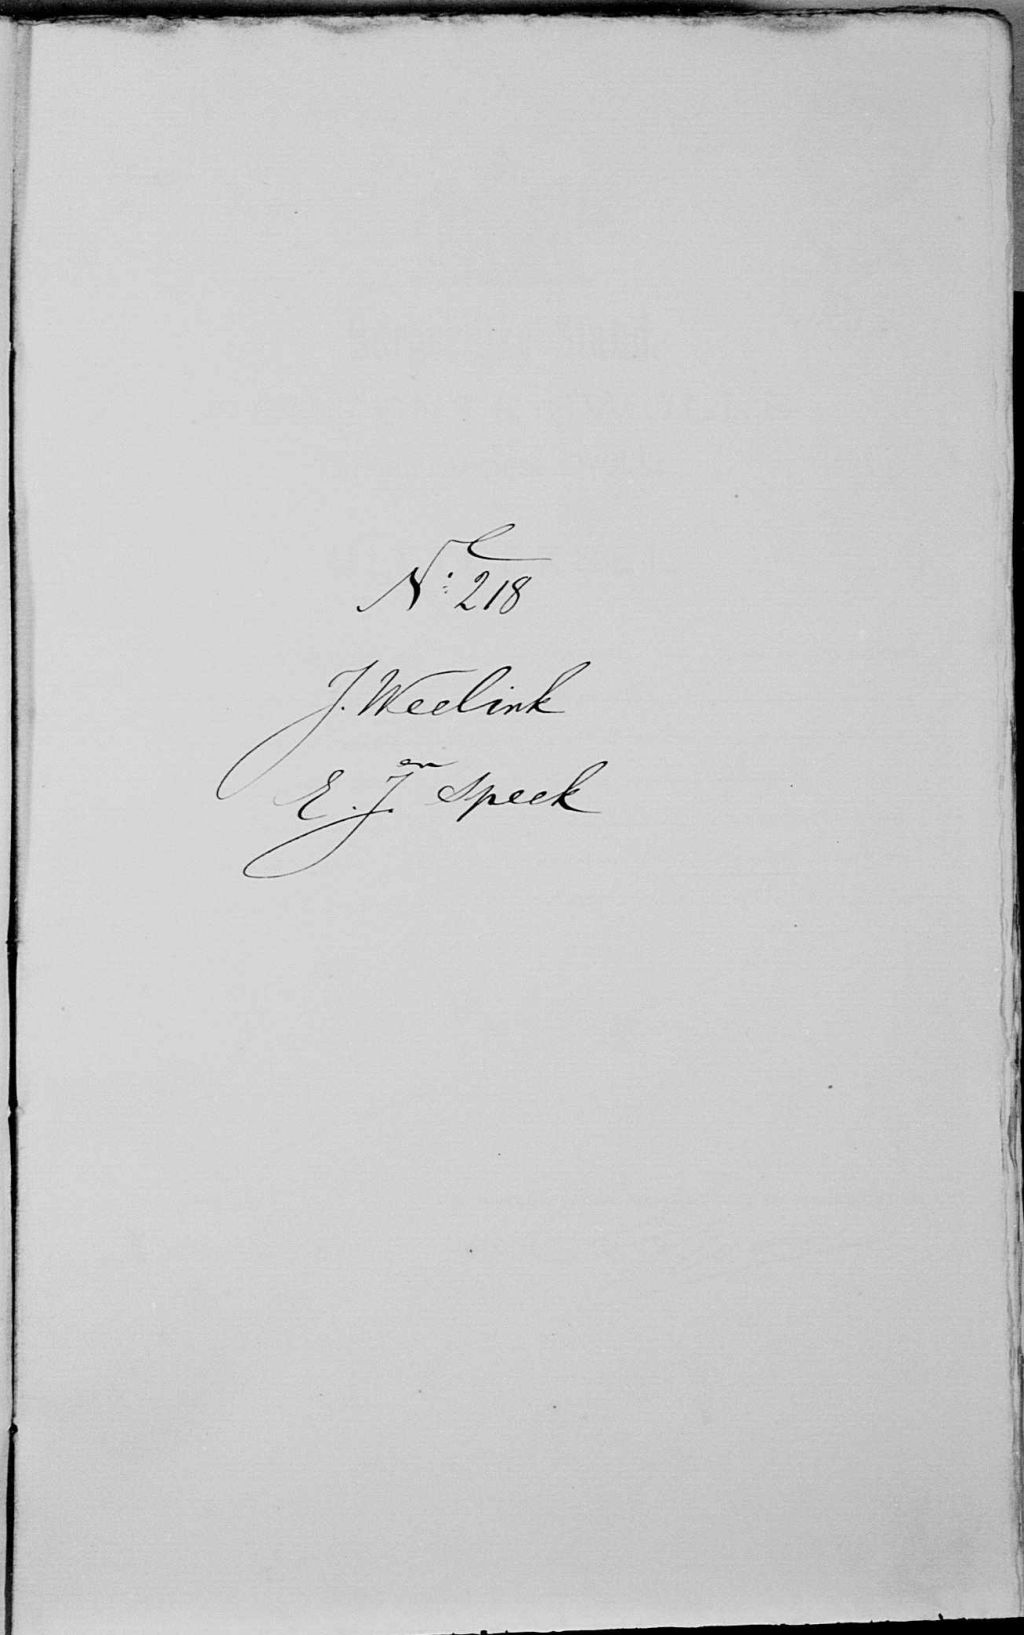 N: 218
J. Weelink
en
E. J. Speek